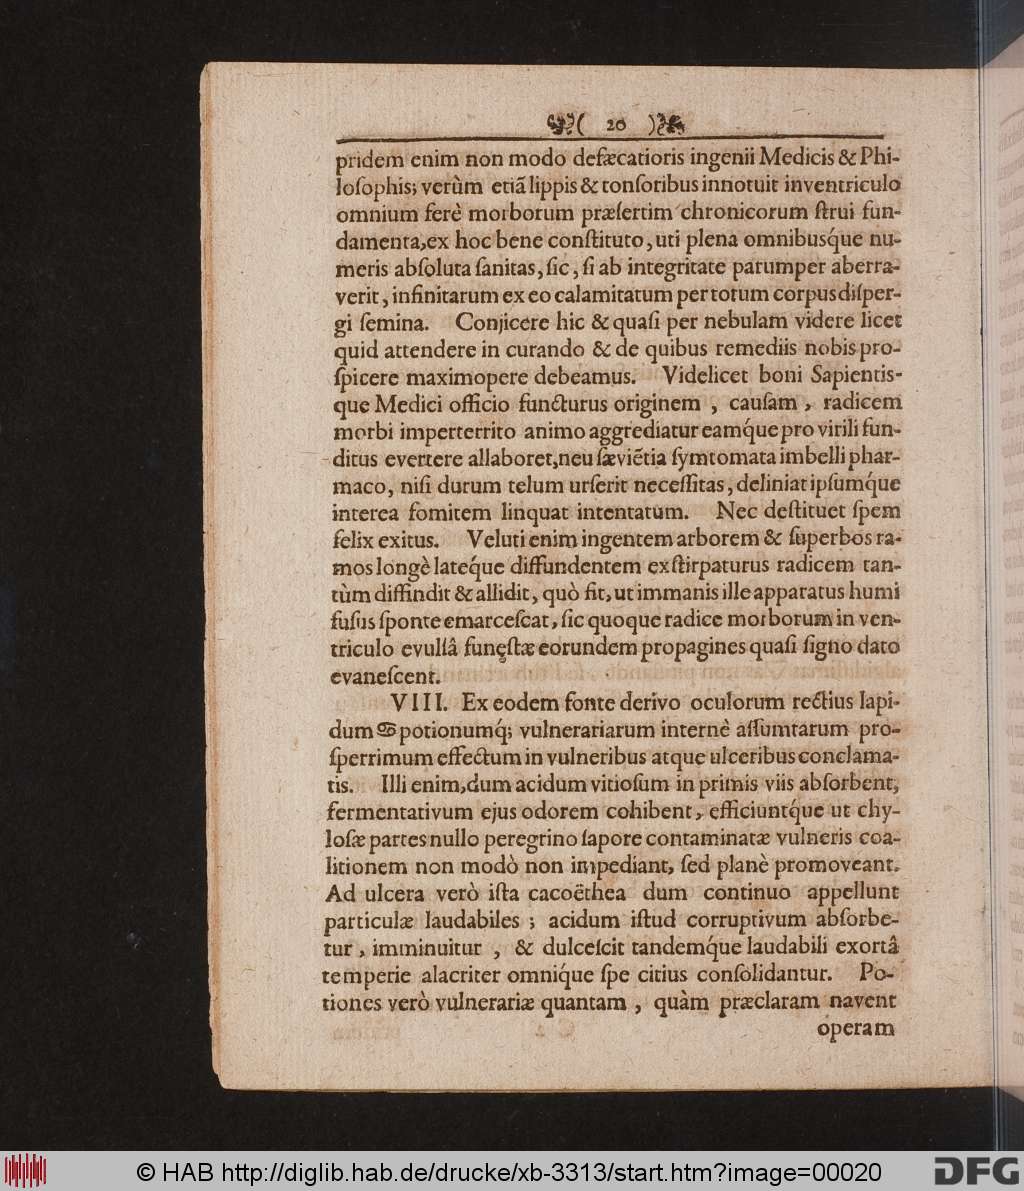 ( 20 )
pridem enim non modo defæcatioris ingenii Medicis & Phi-
loſophis; verùm etiã lippis & tonſoribus innotuit in ventriculo
omnium ferè morborum præſertim chronicorum ſtrui fun-
damenta, ex hoc bene conſtituto, uti plena omnibusq́ue nu-
meris abſoluta ſanitas, ſic, ſi ab integritate parumper aberra-
verit, infinitarum ex eo calamitatum per totum corpus diſper-
gi ſemina. Conjicere hic & quaſi per nebulam videre licet
quid attendere in curando & de quibus remediis nobis pro-
ſpicere maximopere debeamus. Videlicet boni Sapientis-
que Medici officio functurus originem, cauſam, radicem
morbi imperterrito animo aggrediatur eamq́ue pro virili fun-
ditus evertere allaboret, neu ſæviẽtia ſymtomata imbelli phar-
maco, niſi durum telum urſerit neceſſitas, deliniat ipſumq́ue
interea fomitem linquat intentatum. Nec deſtituet ſpem
felix exitus. Veluti enim ingentem arborem & ſuperbos ra-
mos longè lateq́ue diffundentem exſtirpaturus radicem tan-
tùm diffindit & allidit, quò fit, ut immanis ille apparatus humi
fuſus ſponte emarceſcat, ſic quoque radice morborum in ven-
triculo evulſâ funęſtæ eorundem propagines quaſi ſigno dato
evaneſcent.
VIII. Ex eodem fonte derivo oculorum rectius lapi-
dum ♋ potionumq́; vulnerariarum internè aſſumtarum pro-
ſperrimum effectum in vulneribus atque ulceribus conclama-
tis. Illi enim, dum acidum vitioſum in primis viis abſorbent,
fermentativum ejus odorem cohibent, efficiuntq́ue ut chy-
loſæ partes nullo peregrino ſapore contaminatæ vulneris coa-
litionem non modò non impediant, ſed planè promoveant.
Ad ulcera verò iſta cacoëthea dum continuo appellunt
particulæ laudabiles; acidum iſtud corruptivum abſorbe-
tur, imminuitur, & dulceſcit tandemq́ue laudabili exortâ
temperie alacriter omniq́ue ſpe citius conſolidantur. Po-
tiones verò vulnerariæ quantam, quàm præclaram navent
operam
© HAB http://diglib.hab.de/drucke/xb-3313/start.htm?image=00020
DFG